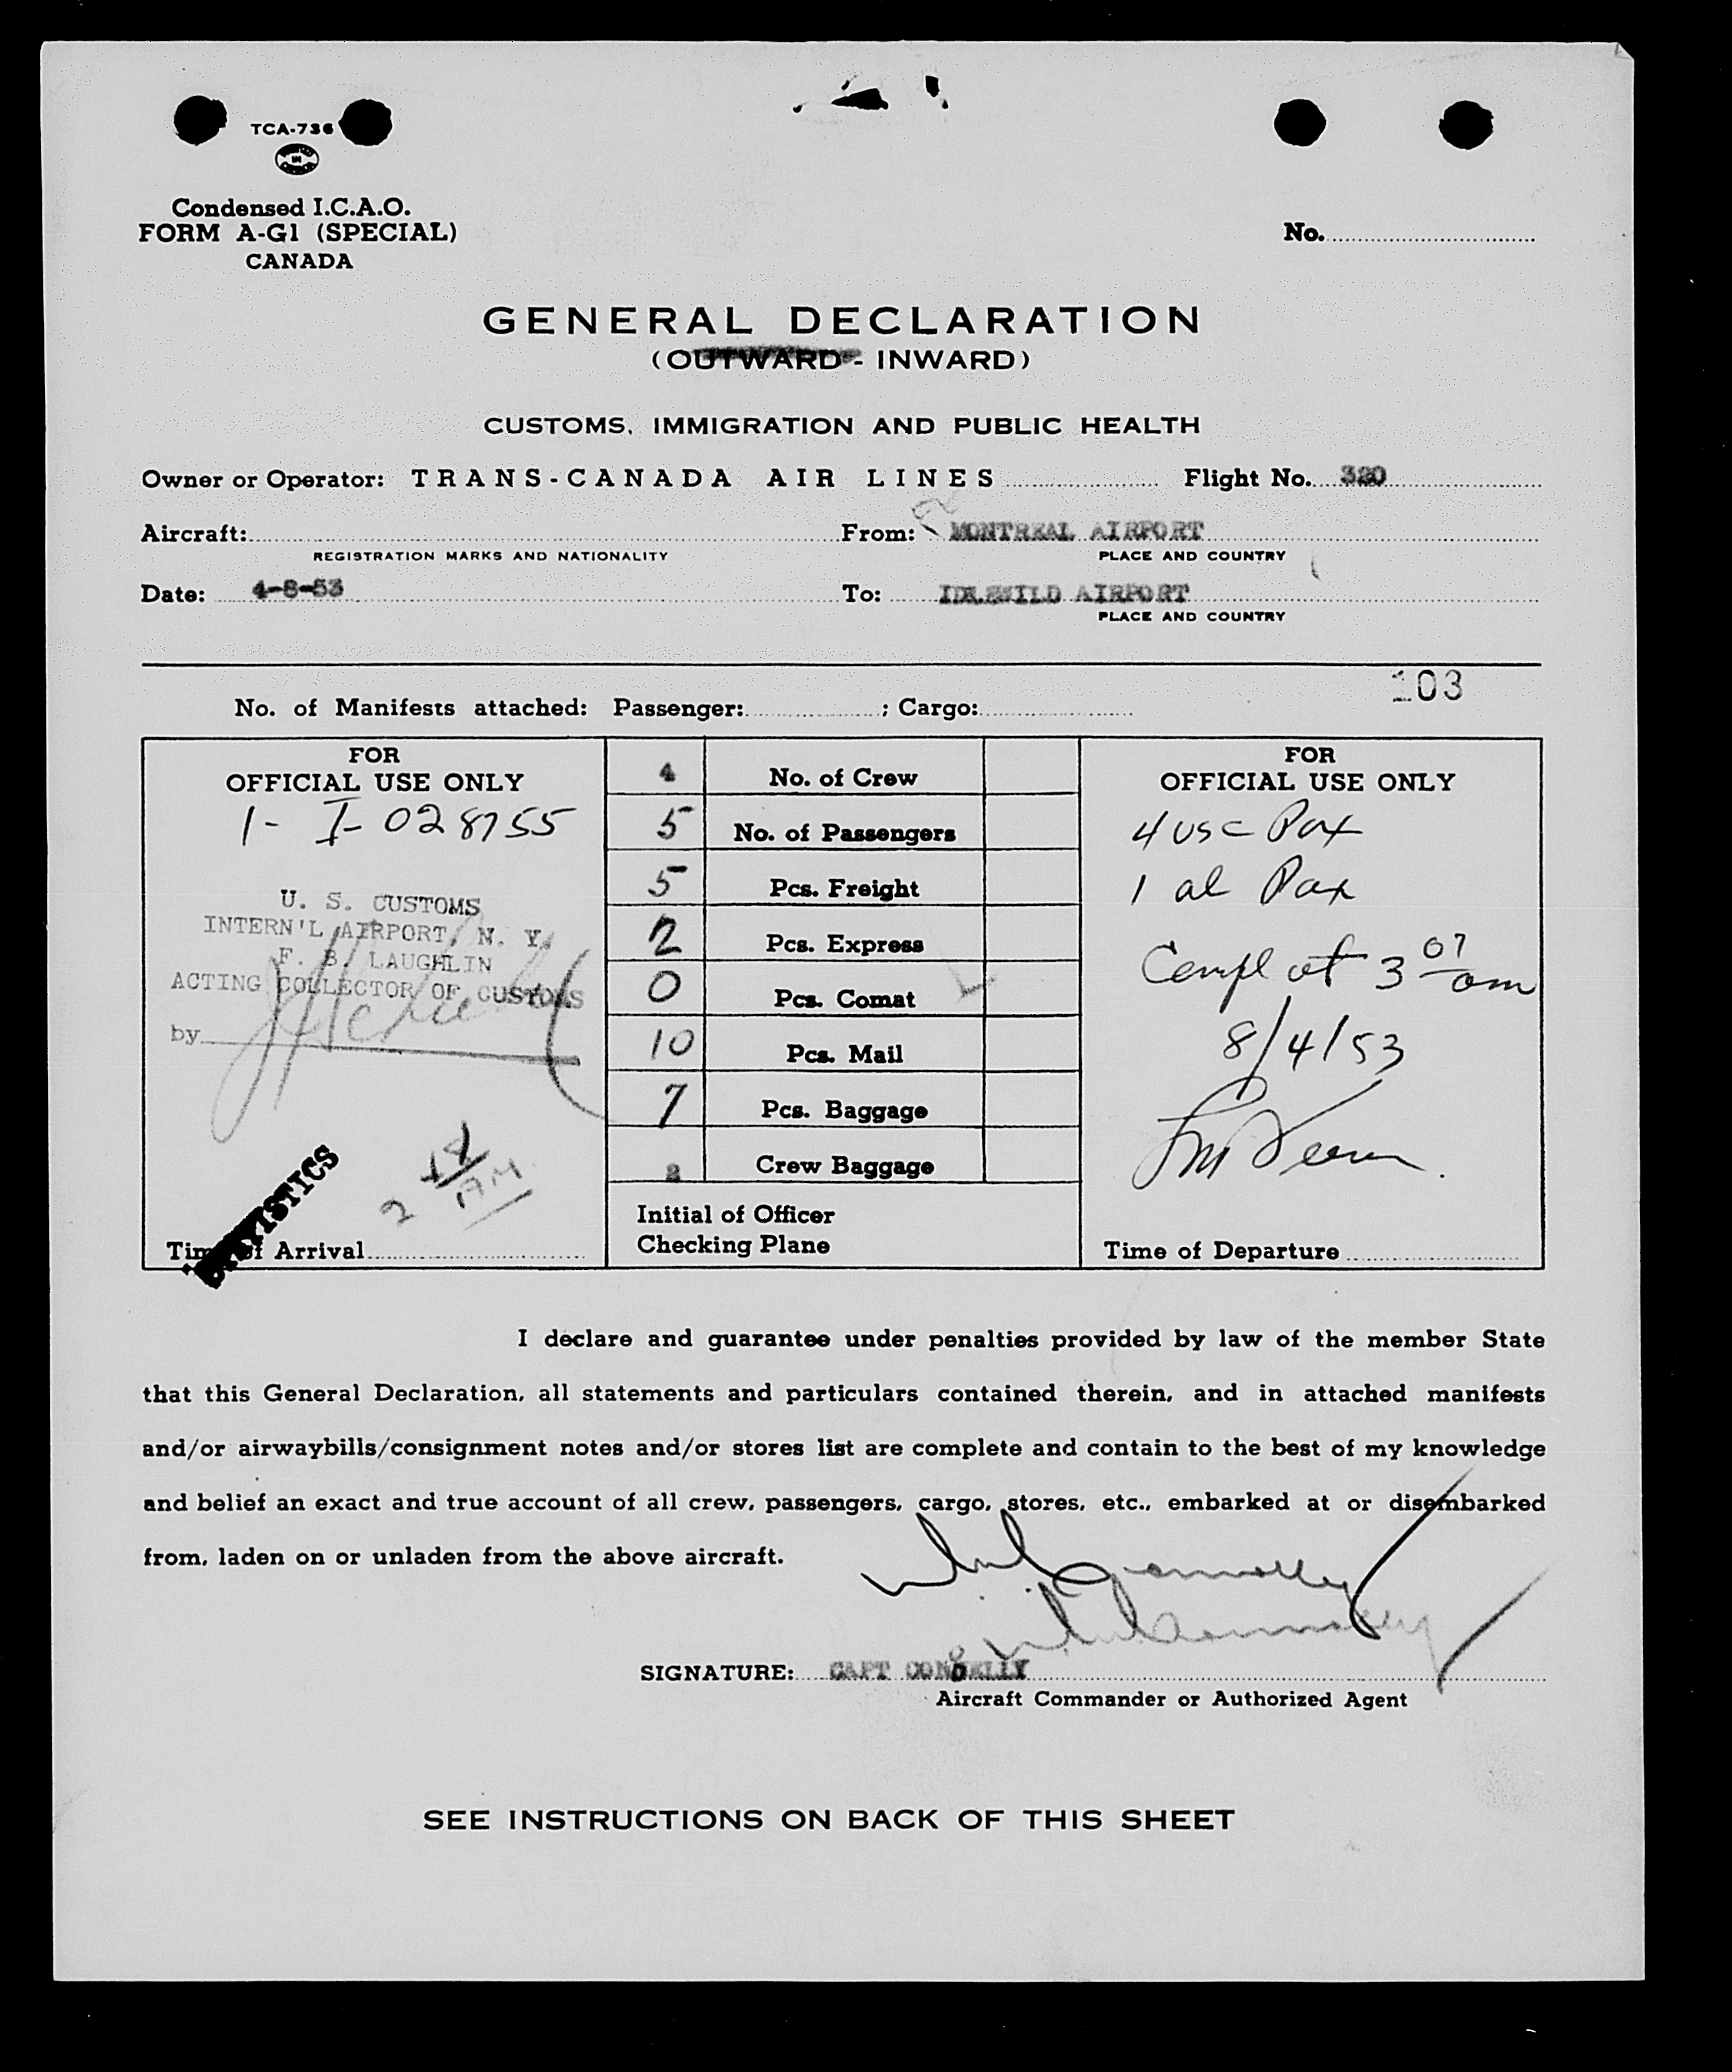 TCA-736
Condensed I.C.A.O.
FORM A-G1 (SPECIAL)
CANADA
No.
GENERAL DECLARATION
(OUTWARD - INWARD)
CUSTOMS, IMMIGRATION AND PUBLIC HEALTH
Owner or Operator: TRANS-CANADA AIR LINES Flight No. 320
Aircraft: From: MONTREAL AIRPORT
REGISTRATION MARKS AND NATIONALITY PLACE AND COUNTRY
Date: 4-8-53 To: IDLEWILD AIRPORT
PLACE AND COUNTRY
103
No. of Manifests attached: Passenger: ; Cargo:
FOR
OFFICIAL USE ONLY
1- I-028755
U. S. CUSTOMS
INTERN'L AIRPORT, N. Y.
F. B. LAUGHLIN
ACTING COLLECTOR OF CUSTOMS
by
STATISTICS
2 AM
Time of Arrival
4 No. of Crew
5 No. of Passengers
5 Pcs. Freight
2 Pcs. Express
0 Pcs. Comat
10 Pcs. Mail
7 Pcs. Baggage
Crew Baggage
Initial of Officer
Checking Plane
FOR
OFFICIAL USE ONLY
4 USC Pax
1 al Pax
Compl at 3 07 am
8/4/53
Time of Departure
I declare and guarantee under penalties provided by law of the member State
that this General Declaration, all statements and particulars contained therein, and in attached manifests
and/or airwaybills/consignment notes and/or stores list are complete and contain to the best of my knowledge
and belief an exact and true account of all crew, passengers, cargo, stores, etc., embarked at or disembarked
from, laden on or unladen from the above aircraft.
SIGNATURE: CAPT CONNELLY
Aircraft Commander or Authorized Agent
SEE INSTRUCTIONS ON BACK OF THIS SHEET